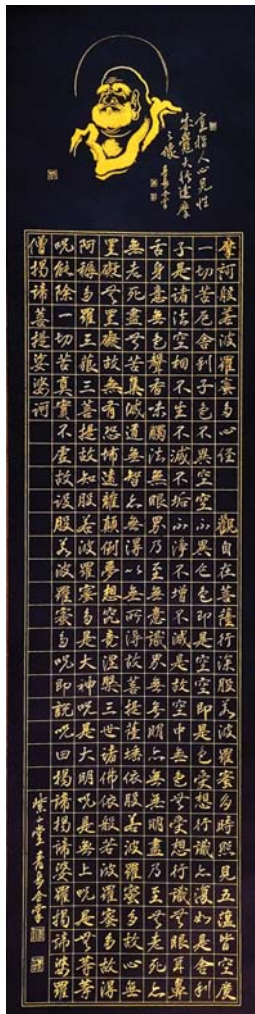 直指人心見性
摩訶般若波羅蜜多心經 觀自在菩薩行深般若波羅蜜多時照見五蘊皆空度
一切苦厄舍利子色不異空空不異色色即是空空即是色受想行識亦復如是舍利
子是諸法空相不生不滅不垢不淨不增不減是故空中無色无受想行識无眼耳鼻
舌身意無色聲香味觸法無眼界乃至無意識界無無明亦無無明盡乃至无老死亦
無老死盡无苦集滅道無智亦無得以無所得故菩提薩埵依般若波羅蜜多故心無
罣礙无罣礙故無有恐怖遠離顛倒夢想究竟涅槃三世諸佛依般若波羅蜜多故得
阿耨多羅三藐三菩提故知般若波羅蜜多是大神呪是大明呪是無上呪是无等等
呪能除一切苦真實不虛故說般若波羅蜜多呪即說呪曰揭諦揭諦婆羅揭諦婆羅
僧揭諦菩提娑婆訶